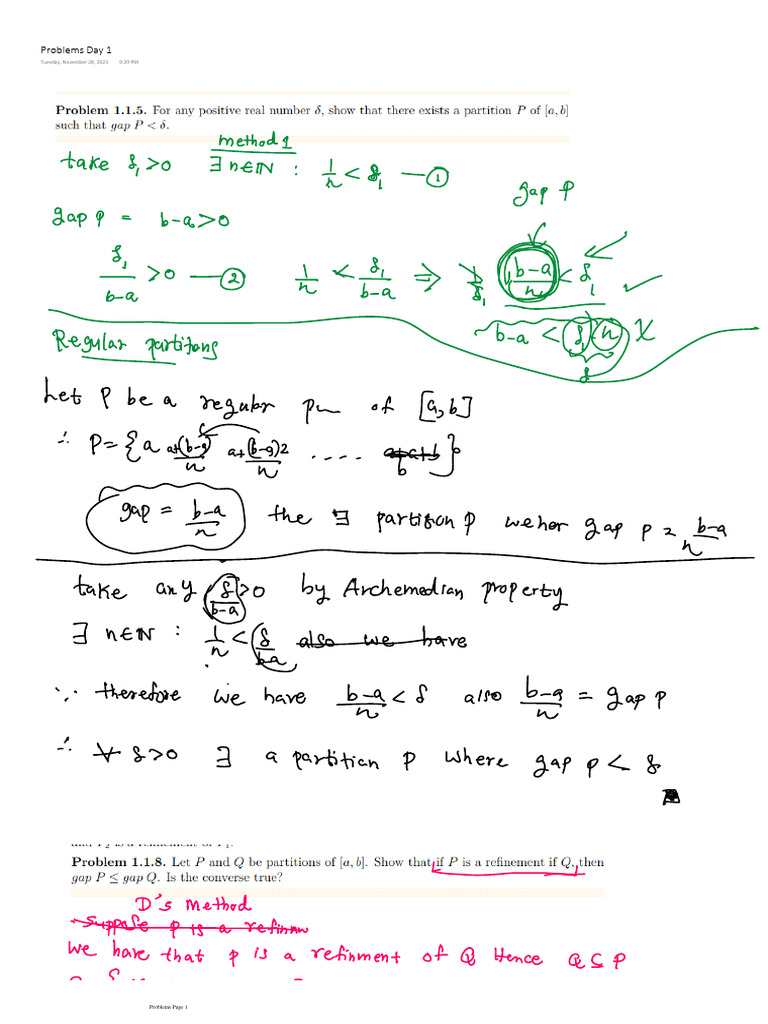 Problems Day 1
Tuesday, November 28, 2023 9:29 PM
Problem 1.1.5. For any positive real number δ, show that there exists a partition P of [a, b]
such that gap P < δ.
method 1
take δ₁>0 ∃ n∈ℕ : 1/n < δ₁ —①
gap P
gap P = b-a>0
δ₁/(b-a) >0 —② 1/n < δ₁/(b-a) ⇒ (b-a)/n < δ₁ ✓
b-a < δ₁ n X
δ
Regular partitons
Let P be a regular of [a,b]
∴ P={a a+(b-a)/n a+(b-a)2/n .... b}
gap = b-a/n the ∃ partition P gap P = b-a/n
take any δ/(b-a) >0 by Archemedian property
∃ n∈ℕ : 1/n < δ/ba also we have
∵ therefore we have b-a/n < δ also b-a/n = gap P
∴ ∀ δ>0 ∃ a partition P where gap P < δ
Problem 1.1.8. Let P and Q be partitions of [a, b]. Show that if P is a refinement if Q, then
gap P ≤ gap Q. Is the converse true?
D's method
suppose P is a refinm
we have that P is a refinment of Q Hence Q⊆P
Problems Page 1